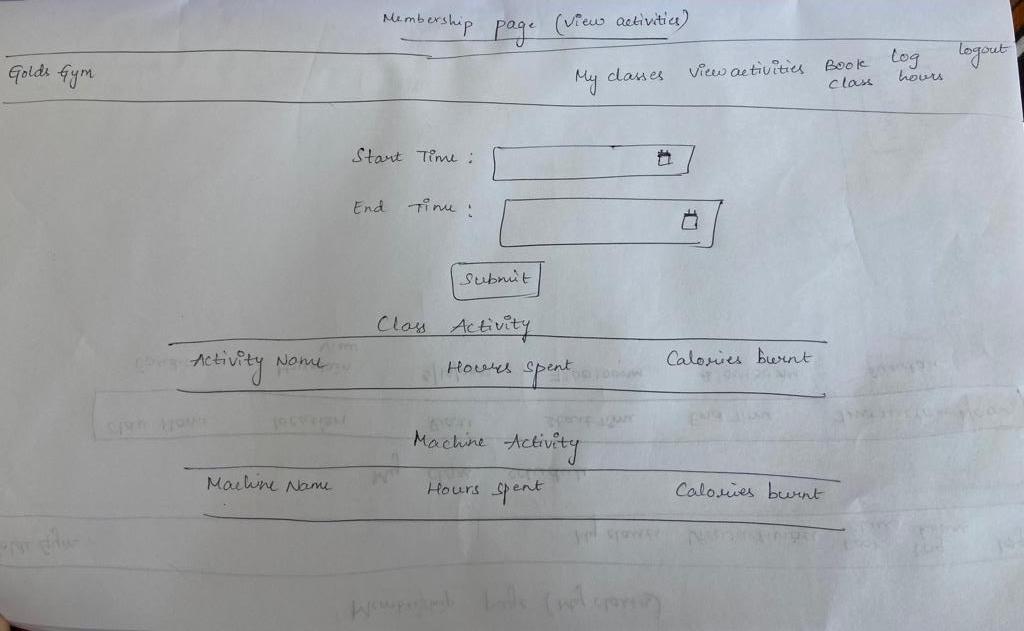 Membership page (View activities)
Golds Gym My classes View activities Book class Log hours logout
Start Time :
End Time :
Submit
Class Activity
Activity Name Hours spent Calories burnt
Machine Activity
Machine Name Hours spent Calories burnt